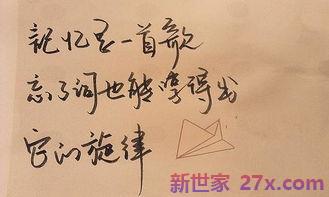 記忆是一首歌
忘了词也能得出
它的旋律
新世家 27x.com